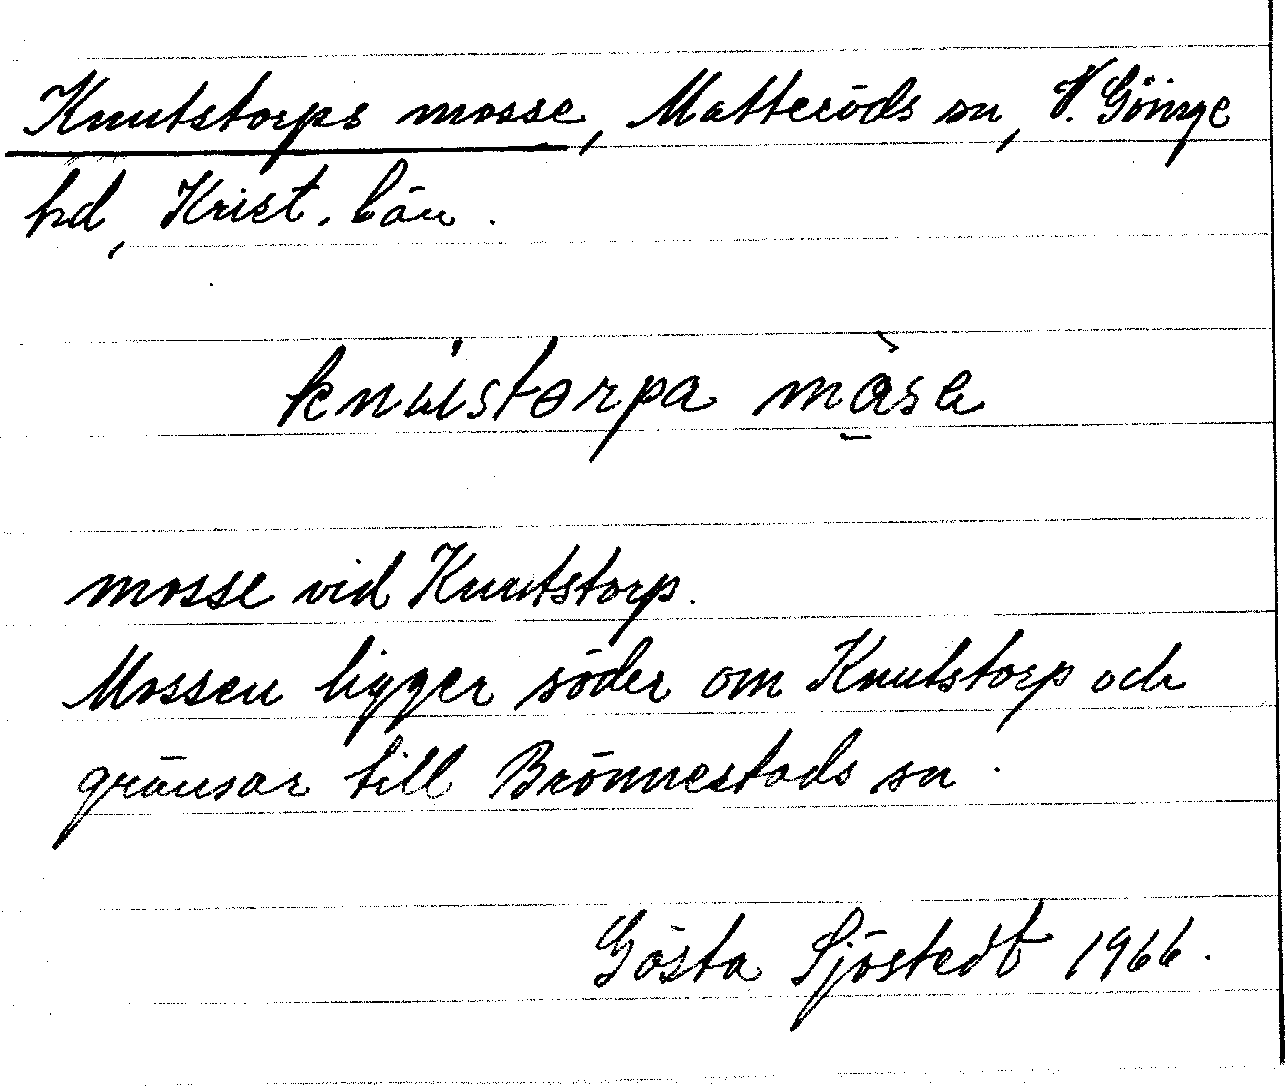 Knutstorps mosse, Matteröds sn, V. Göinge
hd, Krist. län.
knústorpa måsa
mosse vid Knutstorp.
Mossen ligger söder om Knutstorp och
gränsar till Brönnestads sn.
Gösta Sjöstedt 1966.